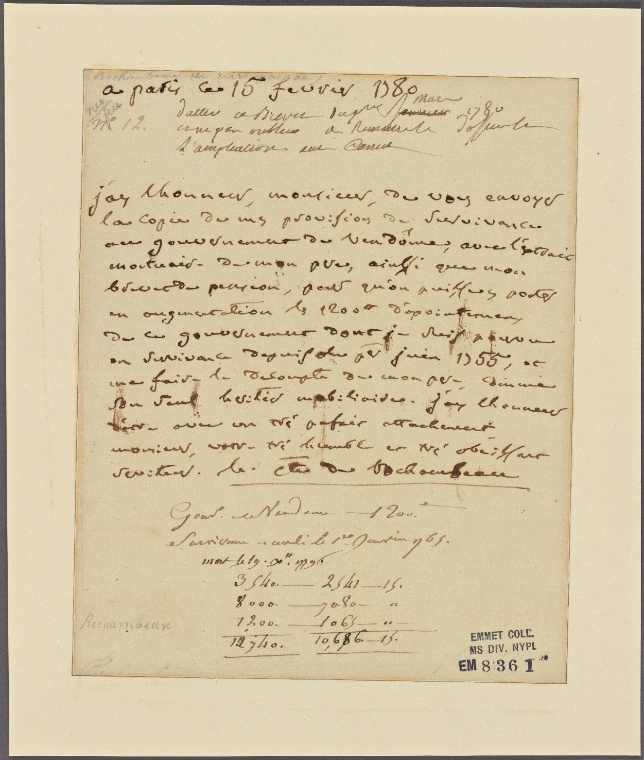 a paris ce 15 fevrier 1780
N° 12.
datter ce Brevet du per mars 1780
L'ampliation
j'ay lhonneur, monsieur, de vous envoyer
la copie de mes provision de survivance
au gouvernement de Vendôme, avec l'extrait
mortuaire de mon pere, ainsi que mon
brevet de pension, pour qu'on puisse porter
en augmentation les 1200 tt d'apointemens
de ce gouvernement dont je suis pourvu
en survivance depuis le per juin 1755, et
me faire le decompte de mon pere, comme
son seul heritier mobiliaire. j'ay lhonneur
d'etre avec un tré parfait attachement
monsieur, votre tré humble et tré obeissant
serviteur. le Cte de Rochambeau
Gouvt de Vendome — 1200
Survivance
3540. — 2541 — 15.
8000. — 7080 — "
1200 — 1065 — "
12740. 10,686 — 15.
Rochambeau
EMMET COLL.
MS DIV. NYPL
EM 8361